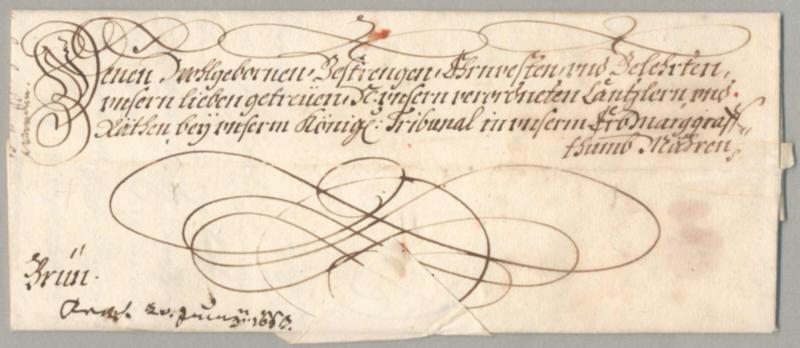 Denen Wollgebornen, Gestrengen, Ehrnvesten, vnd Gelehrten,
vnsern lieben getreüen, N: vnsern verordneten Cantzlern, vnd
Räthen, beÿ vnserm Königl: Tribunal in vnserm Erbmarggraff-
thumb Mähren,
Brün.
20. Junÿ